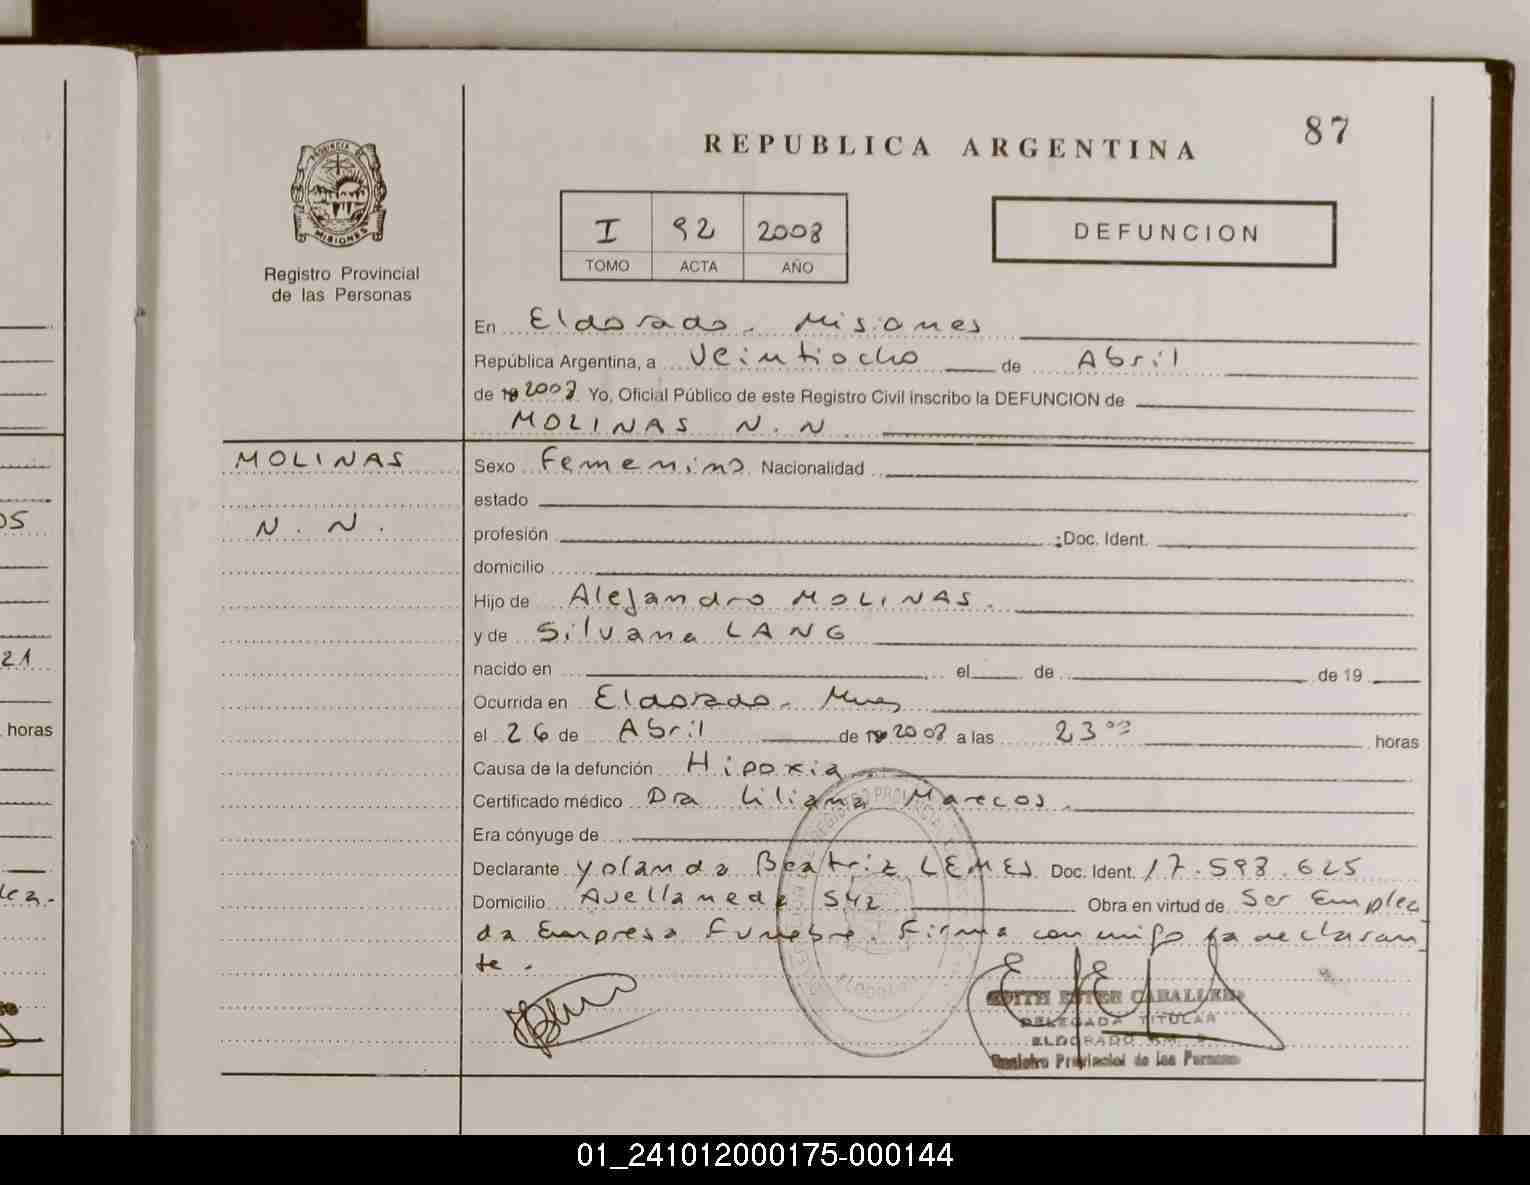 87
REPUBLICA ARGENTINA
PROVINCIA DE
MISIONES
I 92 2008
TOMO ACTA AÑO
DEFUNCION
Registro Provincial
de las Personas
En Eldorado. Misiones
República Argentina, a Veintiocho de Abril
de 19 2008 Yo, Oficial Público de este Registro Civil inscribo la DEFUNCION de
MOLINAS N.N.
MOLINAS
N. N.
Sexo Femenino Nacionalidad
estado
profesión ; Doc. Ident.
domicilio
Hijo de Alejandro MOLINAS.
y de Silvana LANG
nacido en el de de 19
Ocurrida en Eldorado. Mnes
el 26 de Abril de 19 2008 a las 23 00 horas
Causa de la defunción Hipoxia.
Certificado médico Dra Liliana Marecos.
Era cónyuge de
Declarante Yolanda Beatriz LEMES Doc. Ident. 17.593.625
Domicilio Avellaneda 542 Obra en virtud de Ser Emplea
da Empresa Funebre. Firma conmigo la declaran
te.
EDITH ESTER CABALLERO
DELEGADA TITULAR
ELDORADO
Registro Provincial de las Personas
05
21
horas
01_241012000175-000144